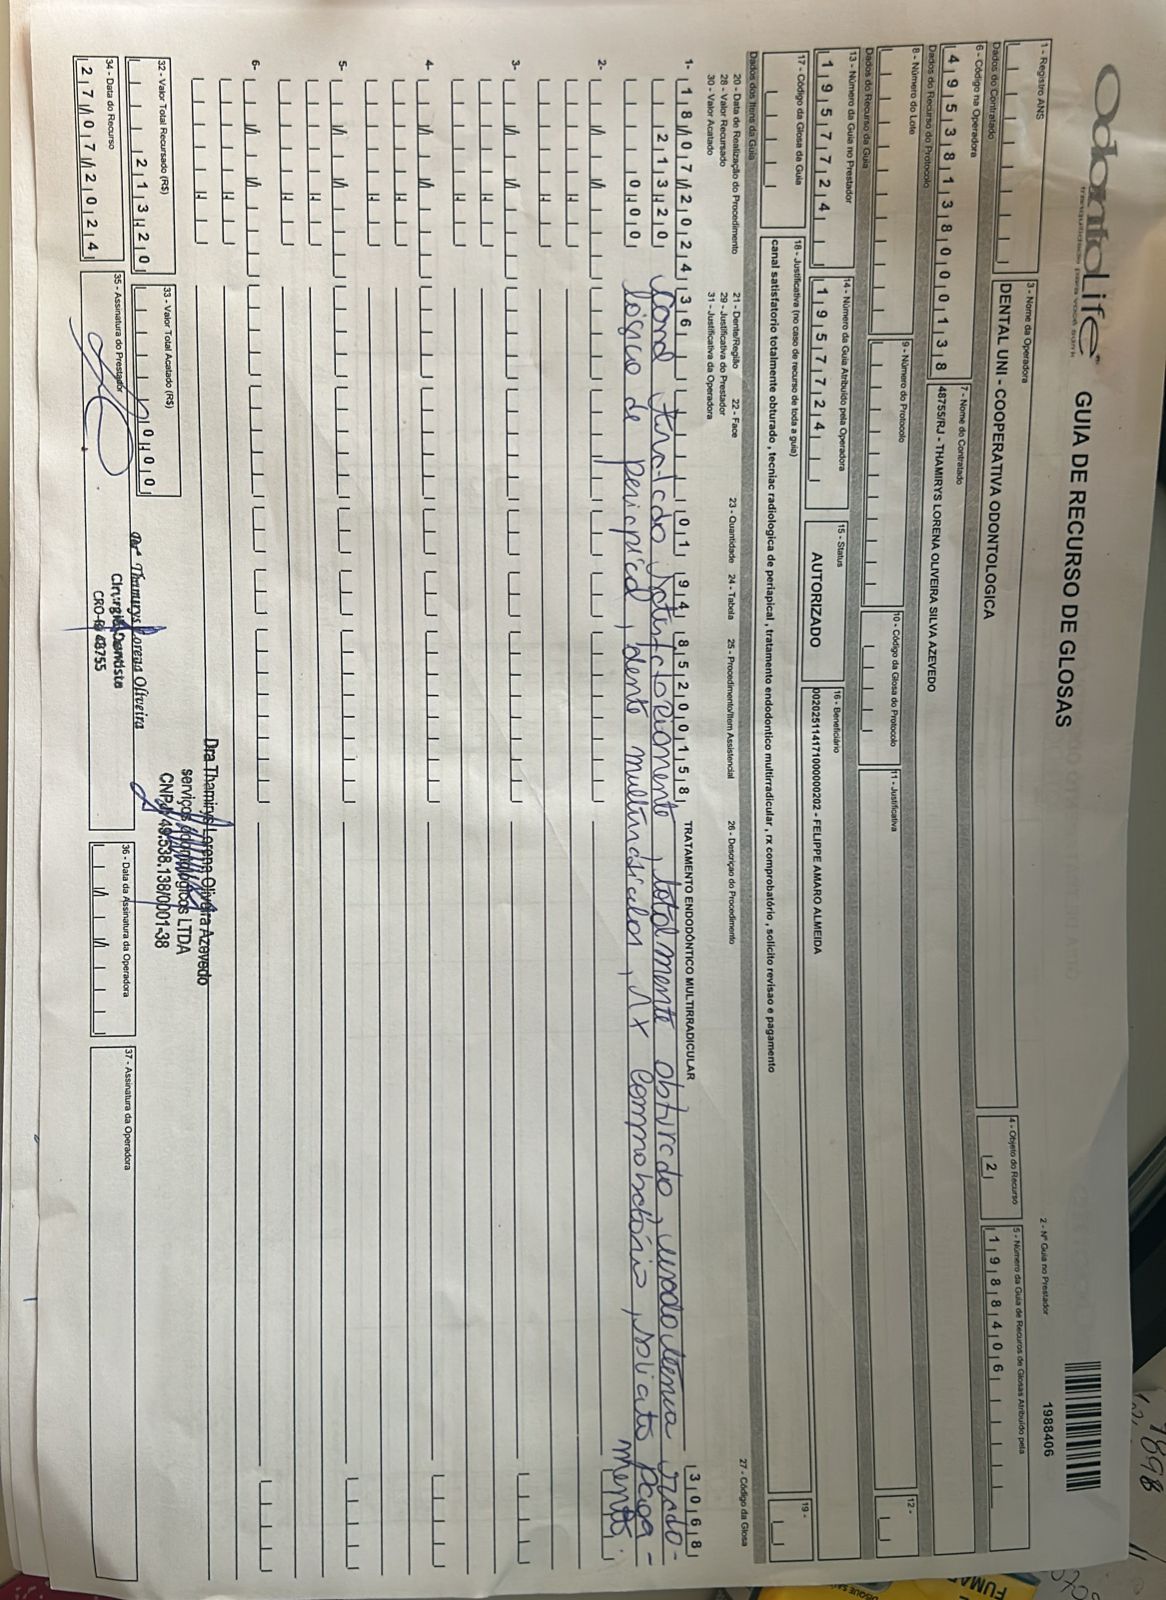 OdontoLife
tranquilidade para você sorrir
GUIA DE RECURSO DE GLOSAS
2 - Nº Guia no Prestador
1988406
1 - Registro ANS
3 - Nome da Operadora
DENTAL UNI - COOPERATIVA ODONTOLOGICA
4 - Objeto do Recurso
2
5 - Número da Guia de Recuros de Glosas Atribuído pela
1988406
Dados do Contratado
6 - Código na Operadora
49538138000138
7 - Nome do Contratado
48755/RJ - THAMIRYS LORENA OLIVEIRA SILVA AZEVEDO
Dados do Recurso do Protocolo
8 - Número do Lote
9 - Número do Protocolo
10 - Código da Glosa do Protocolo
11 - Justificativa
12 -
Dados do Recurso da Guia
13 - Número da Guia no Prestador
1957724
14 - Número da Guia Atribuído pela Operadora
1957724
15 - Status
AUTORIZADO
16 - Beneficiário
00202511417100000202 - FELIPPE AMARO ALMEIDA
17 - Código da Glosa da Guia
18 - Justificativa (no caso de recurso de toda a guia)
canal satisfatorio totalmente obturado , tecniac radiologica de periapical , tratamento endodontico multirradicular , rx comprobatório , solicito revisao e pagamento
19 -
Dados dos Itens da Guia
20 - Data de Realização do Procedimento 21 - Dente/Região 22 - Face 23 - Quantidade 24 - Tabela 25 - Procedimento/Item Assistencial 26 - Descriçao do Procedimento 27 - Código da Glosa
28 - Valor Recursado 29 - Justificativa do Prestador
30 - Valor Acatado 31 - Justificativa da Operadora
1- 18/07/2024 36 01 94 85200158 TRATAMENTO ENDODÔNTICO MULTIRRADICULAR 3068
213,20 canal tratado satisfatoriamente, totalmente obturado, usado técnica radio-
0,00 lógica de periapical, dente multirradicular, rx comprobatório, solicito paga-
mento.
2-
3-
4-
5-
6-
32 - Valor Total Recursado (R$)
213,20
33 - Valor Total Acatado (R$)
0,00
Dra Thamirys Lorena Oliveira Azevedo
serviços odontológicos LTDA
CNPJ: 49.538.138/0001-38
34 - Data do Recurso
27/07/2024
35 - Assinatura do Prestador
Drª Thamirys Lorena Oliveira
Cirurgiã Dentista
CRO-RJ 48755
36 - Data da Assinatura da Operadora
37 - Assinatura da Operadora